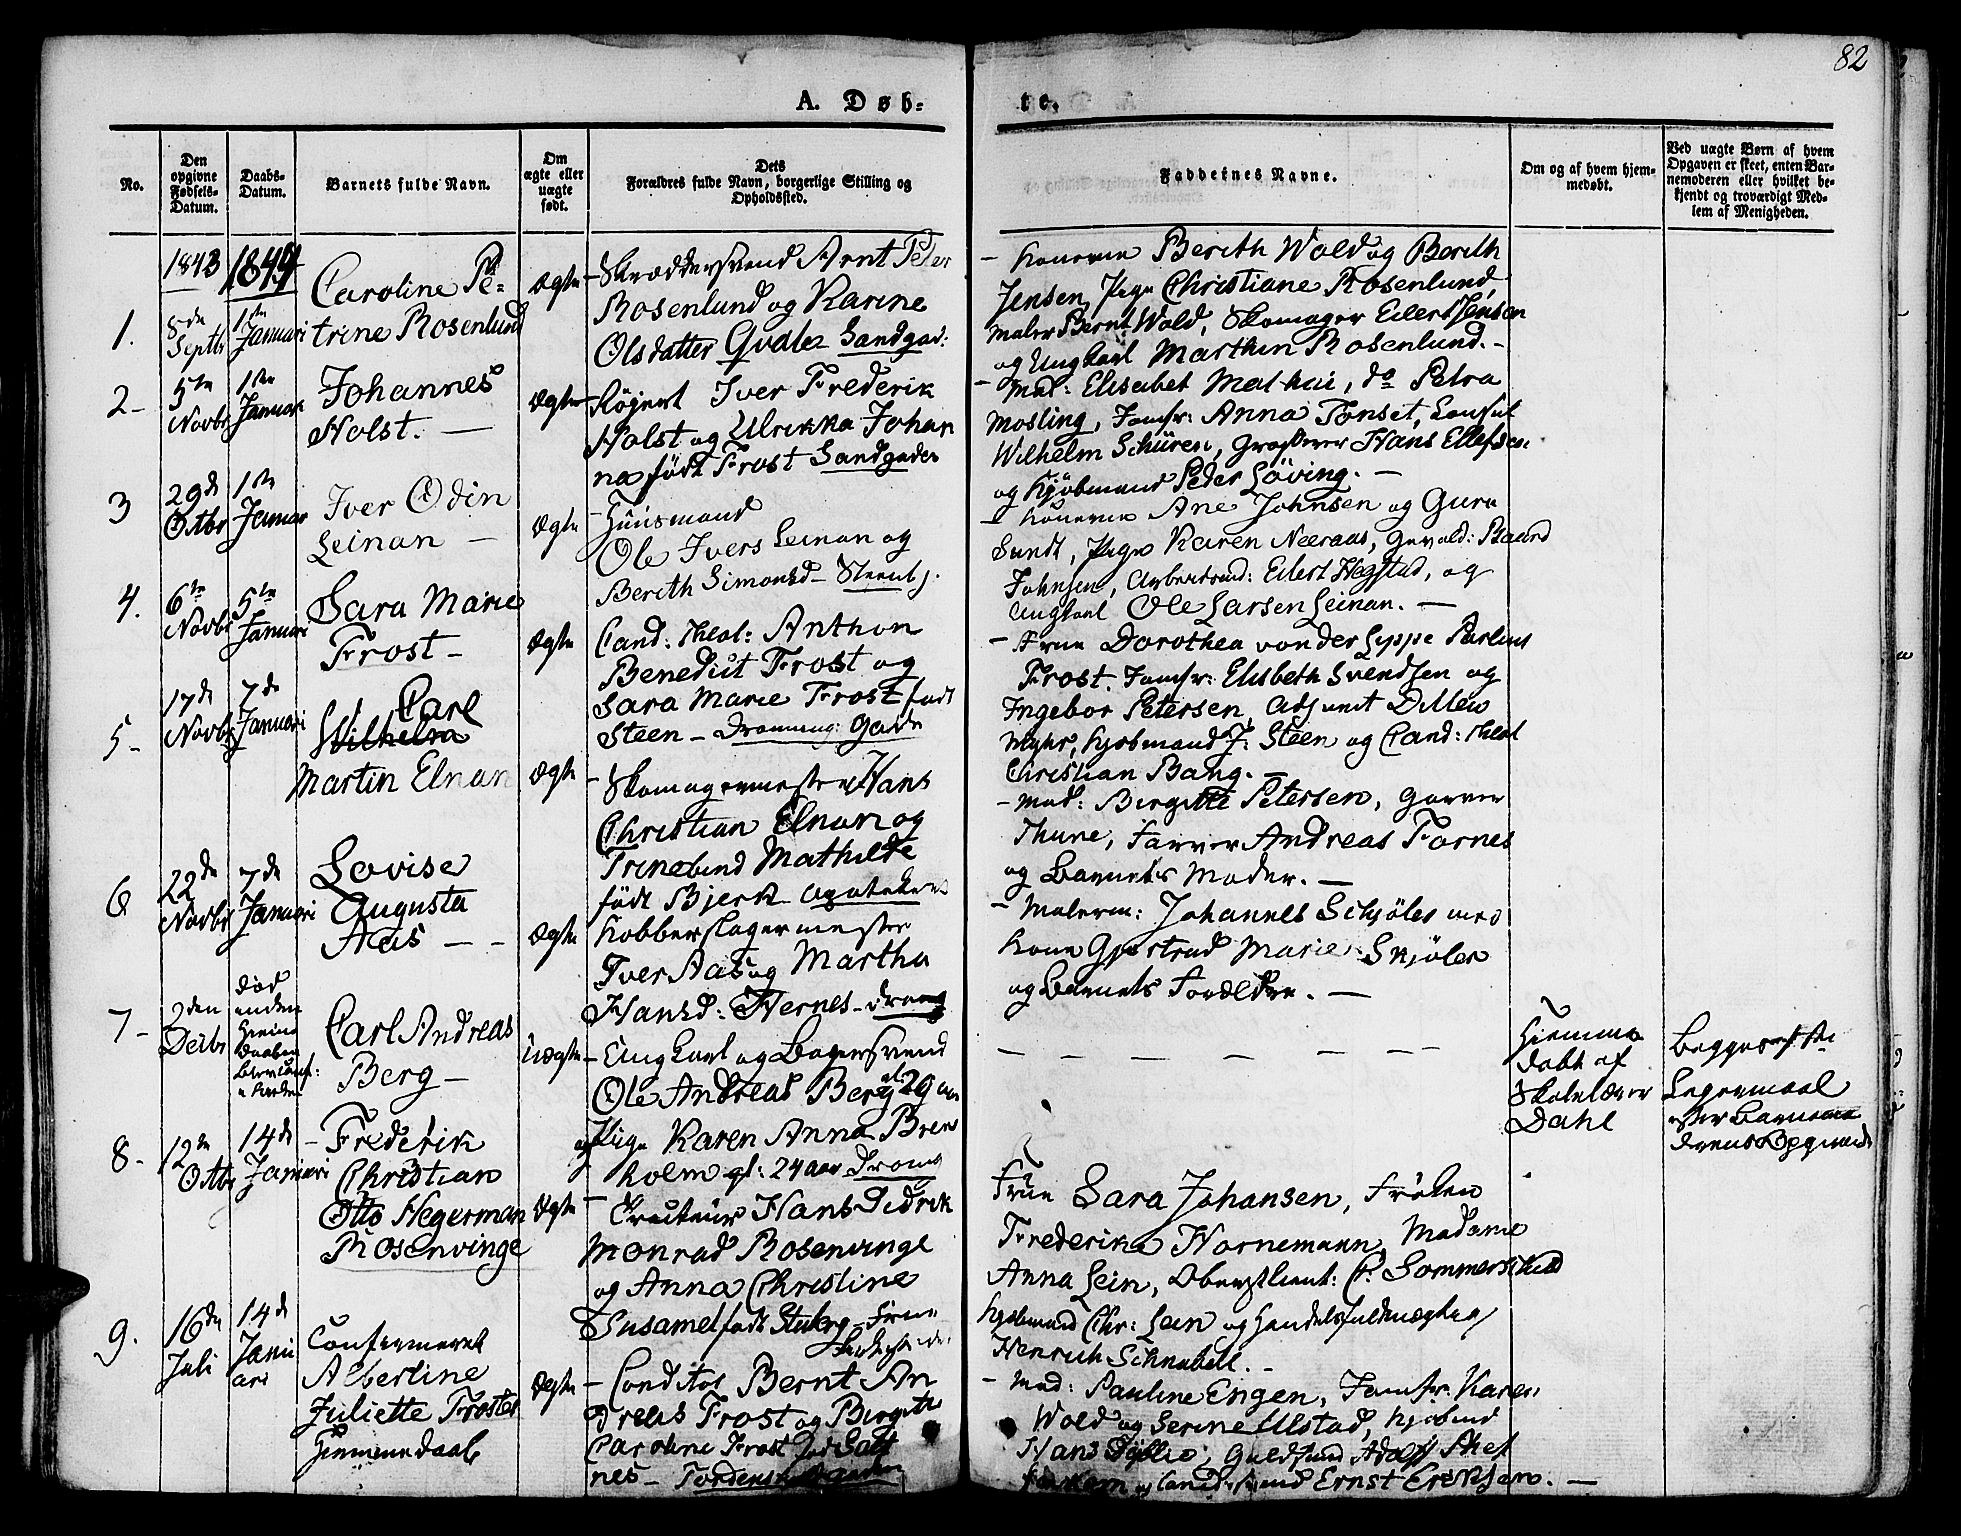 82
A. Døb-
te.
No.
Den opgivne Fødsels-Datum.
Daabs-Datum.
Barnets fulde Navn.
Om ægte eller uægte født.
Dets Forældres fulde Navn, borgerlige Stilling og Opholdssted.
Faddernes Navne.
Om og af hvem hjem-
medøbt.
Ved uægte Børn af hvem
Opgaven er skeet, enten Bar-
nemoderen eller hvilket be-
kjendt og troværdigt Med-
lem af Menigheden.
1843 1844
1. 5de Septbr 1ste Januari
Caroline Pe-
trine Rosenlund
Ægte
Skræddersvend Arnt Peter
Rosenlund og Karine
Olsdatter Gvale Sandgad:
Konerne Berith Wold og Berith
Jensen, Pige Christiane Rosenlund,
Maler Bernt Wold, Skomager Eilert Jensen
og Ungkarl Marthin Rosenlund. -
2- 5te Novbr 1ste Januar
Johannes
Holst. -
Ægte
Røgert Iver Frederik
Holst og Ulrikka Johan
ne født Frost Sandgaden
- Mad: Elisabet Mathai, do Petra
Mosling, Jomfr: Anna Tønset, Consul
Wilhelm Schüren, Grosserer Hans Ellefsen
og Kjøbmand Peder Løving. -
3 29de Octbr 1ste Januar
Iver Odin
Leinan -
Ægte
- Huusmand
Ole Ivers Leinan og
Berith Simonsd - Steenbj.
- Konerne Ane Johnsen og Guru
Sundt, Pige Karen Neeraas, Gevald: Baard
Johnsen, Arbeidsmd: Eilert Hegstad, og
Ungkarl Ole Larsen Leinan. -
4. 6te Novbr 5te Januari
Sara Marie
Frost -
Ægte
Cand: theol: Anthon
Benedict Frost og
Sara Marie Frost født
Steen - Dronning: Gade
- Frue Dorothea von der Lyppe Parlius
Frost. Jomfr: Elisbeth Svendsen og
Ingebor Petersen, Adjunct Ditlev
Kjøbmand J: Steen og Cand: theol
Christian Bang. -
5- 17de Novbr 7de Januari
Carl
Wilhelm
Martin Elnan
Ægte
- Skomagermester Hans
Christian Elnan og
Trinebend Mathilde
født Bjerk Apotekerv
- Mad: Birgitte Petersen, Garver
Thune, Farver Andreas Fornes
og Barnets Moder. -
6 22de Novbr 7de Januari
Lovise
Augusta
Aas - -
Ægte
Kobberslagermester
Iver Aas og Martha
Hansd: Hernes - Drong
- Malerm: Johannes Schjøler med
Kone Gjertrud Marie Skjøler
og Barnets Forældre. -
7- 2den Decbr død
Carl Andreas
Berg -
Uægte
- Ungkarl og Bagersvend
Ole Andreas Berg gl: 29 aar
og Pige Karen Anna Bren
holm gl: 24 aar Drong
- - - - - -
Hjemme
døbt af
Skolelærer
Dahl
Begges 1ste
Legermaal
efter Barnema
8- 12te Octbr 14de Januari
- Frederik
Christian
Otto Hegerman
Rosenvinge
Ægte
- Traiteur Hans Didrik
Monrad Rosenvinge
og Anna Christine
Susamel født Stuberg - Frue
Frue Sara Johansen, Frøken
Frederike Hornemann, Madame
Anna Lein, Oberstlieut: C. Sommerschild
Kjøbmand Chr: Lein og Handelsfuldmægtig
Henrich Schnabell. -
9. 16de Juli 14de Janu
ari
Confirmeret
Albertine
Juliette Frostes
Hjemmedaab
Ægte
- Conditor Bernt An
dreas Frost og Birgitte
Caroline Frost født Salt
nes - Tordenskjoldsgaden
- Mad: Pauline Engen, Jomfr: Karen
Wold og Serine Ulstad, Kjøbmd
Hans Guldsmd Adolf
og Ernst Eriksen. -